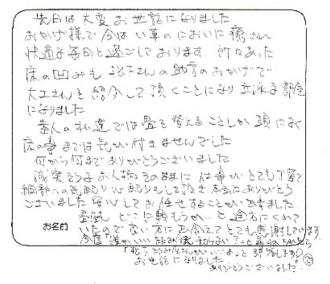 先日は大変お世話になりました
おかげ様で今はい草のにおいに癒され
快適な毎日を過ごしております。所々あった
床の凹みも 松下さんの助言のおかげで
大工さんを紹介して頂くことになり 立派な部屋
になりました
素人の私達では畳を替えることしか頭になく
床の事までは気が付きませんでした
何から何までありがとうございました
誠実そうなお人柄そのままに 仕事がとても丁寧で
細部への気配り 心配りもして頂き 本当にありがとう
ございました 安心してお任せすることが出来ました
どこに頼もうか…と途方にくれて
いたので 出会えてとても感謝しています
お名前
お世話になりました
ありがとうございました。